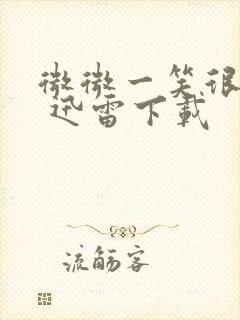 微微一笑很
迅雷下載
流觴客